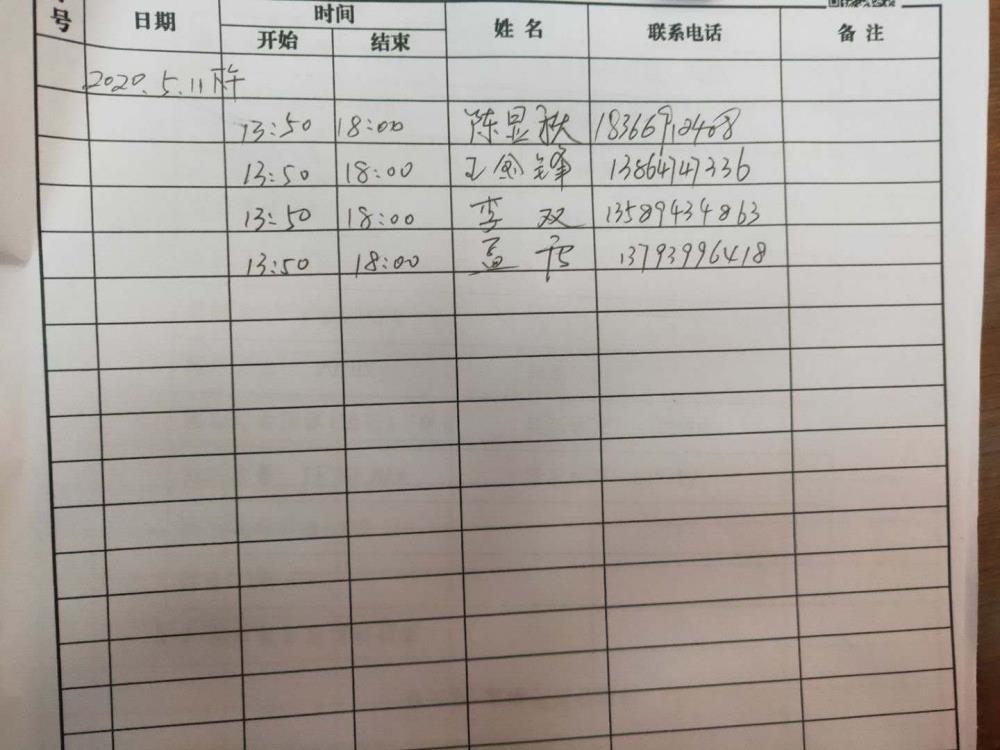 号 日期 时间 姓名 联系电话 备注
开始 结束
2020.5.11下午
13:50 18:00 陈显秋 18366912468
13:50 18:00 王金锋 13864747336
13:50 18:00 李双 13589434863
13:50 18:00 孟 13793996418